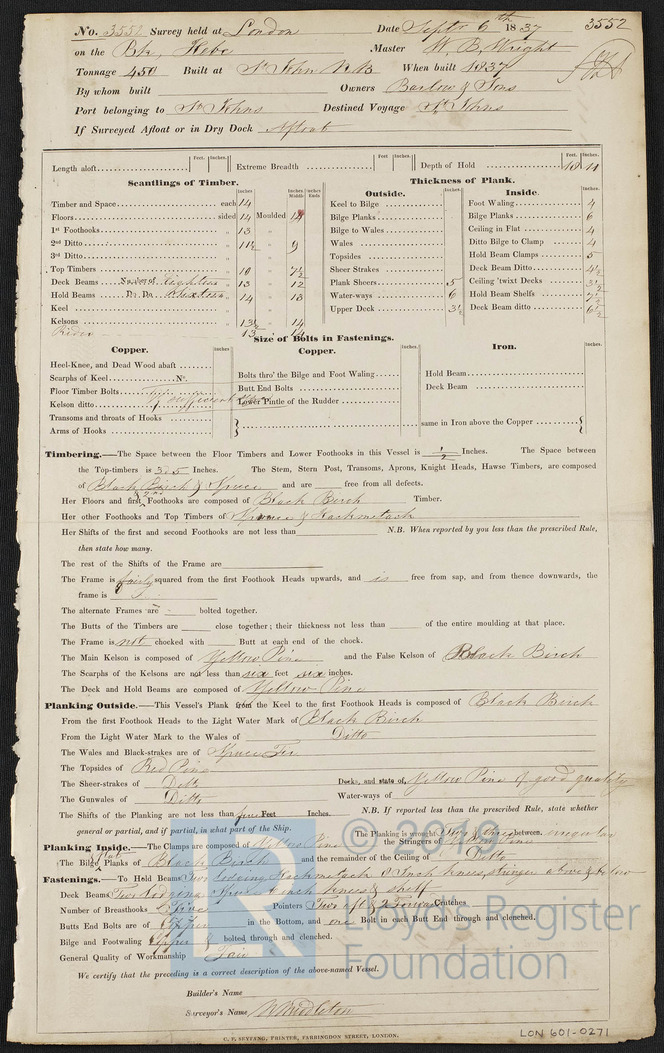 No. 3552 Survey held at London Date Septr 6th 1837 3552
on the Bk. Hebe Master W. B. Wright
Tonnage 450 Built at St John N.B When built 1837
By whom built Owners Barlow & Sons
Port belonging to St Johns Destined Voyage St Johns
If Surveyed Afloat or in Dry Dock Afloat
Length aloft Feet. Inches. Extreme Breadth Feet. Inches. Depth of Hold Feet. Inches. 18 11
Scantlings of Timber. Thickness of Plank.
Inches Inches Middle Inches Ends Outside. Inches. Inside. Inches.
Timber and Space each 14 Keel to Bilge Foot Waling 4
Floors sided 14 Moulded 14 Bilge Planks Bilge Planks 6
1st Foothooks " 13 " Bilge to Wales Ceiling in Flat 4
2nd Ditto " 11½ " 9 Wales Ditto Bilge to Clamp 4
3rd Ditto " " Topsides Hold Beam Clamps 5
Top Timbers " 10 " 7½ Sheer Strakes Deck Beam Ditto 4½
Deck Beams Number of Eighteen " 13 12 Plank Sheers 5 Ceiling 'twixt Decks 3½
Hold Beams Do. Do. " 14 " 13 Water-ways 6 Hold Beam Shelfs 7½
Keel " " Upper Deck 3½ Deck Beam ditto 6½
Kelsons " 13½ " 14
Rider 13 14
Size of Bolts in Fastenings.
Copper. Inches Copper. Inches. Iron. Inches.
Heel-Knee, and Dead Wood abaft Bolts thro' the Bilge and Foot Waling Hold Beam
Scarphs of Keel No. Butt End Bolts Deck Beam
Floor Timber Bolts Lower Pintle of the Rudder
Kelson ditto Of sufficient size
Transoms and throats of Hooks same in Iron above the Copper
Arms of Hooks
Timbering.—The Space between the Floor Timbers and Lower Foothooks in this Vessel is ½ Inches. The Space between
the Top-timbers is 3 to 5 Inches. The Stem, Stern Post, Transoms, Aprons, Knight Heads, Hawse Timbers, are composed
of Black Birch & Spruce and are free from all defects.
Her Floors and first & 2nd Foothooks are composed of Black Birch Timber.
Her other Foothooks and Top Timbers of Spruce & Hackmetack
Her Shifts of the first and second Foothooks are not less than N.B. When reported by you less than the prescribed Rule,
then state how many.
The rest of the Shifts of the Frame are
The Frame is fairly squared from the first Foothook Heads upwards, and is free from sap, and from thence downwards, the
frame is
The alternate Frames are bolted together.
The Butts of the Timbers are close together; their thickness not less than of the entire moulding at that place.
The Frame is not chocked with Butt at each end of the chock.
The Main Kelson is composed of Yellow Pine and the False Kelson of Black Birch
The Scarphs of the Kelsons are not less than six feet six inches.
The Deck and Hold Beams are composed of Yellow Pine
Planking Outside.—This Vessel's Plank from the Keel to the first Foothook Heads is composed of Black Birch
From the first Foothook Heads to the Light Water Mark of Black Birch
From the Light Water Mark to the Wales of Ditto
The Wales and Black-strakes are of Spruce Fir
The Topsides of Red Pine
The Sheer-strakes of Ditto Decks, and state of, Yellow Pine of good quality
The Gunwales of Ditto Water-ways of
The Shifts of the Planking are not less than five Feet Inches. N.B. If reported less than the prescribed Rule, state whether
general or partial, and if partial, in what part of the Ship. The Planking is wrought Two & three between, irregular
Planking Inside.—The Clamps are composed of Yellow Pine the Stringers of Yellow Pine
The Bilge & flat Planks of Black Birch and the remainder of the Ceiling of Ditto
Fastenings.—To Hold Beams Two lodging Hackmetack Inch knees, stringer above & below
Deck Beams Two lodging knees & shelf
Number of Breasthooks Pointers Two Crutches
Butts End Bolts are of Copper in the Bottom, and one Bolt in each Butt End through and clenched.
Bilge and Footwaling Copper & bolted through and clenched.
General Quality of Workmanship Fair
We certify that the preceding is a correct description of the above-named Vessel.
Builder's Name
Surveyor's Name W Middleton
C. F. SEYFANG, PRINTER, FARRINGDON STREET, LONDON.
LON 601-0271
© 2019
Lloyd's Register
Foundation